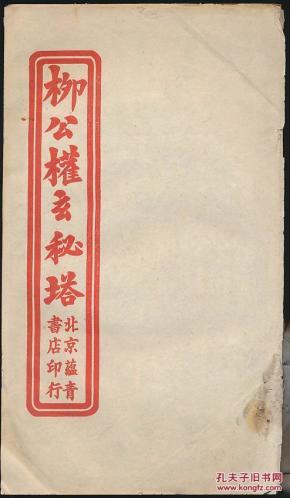 柳公權玄秘塔
北京蘊青
書店印行
孔夫子旧书网
www.kongfz.com